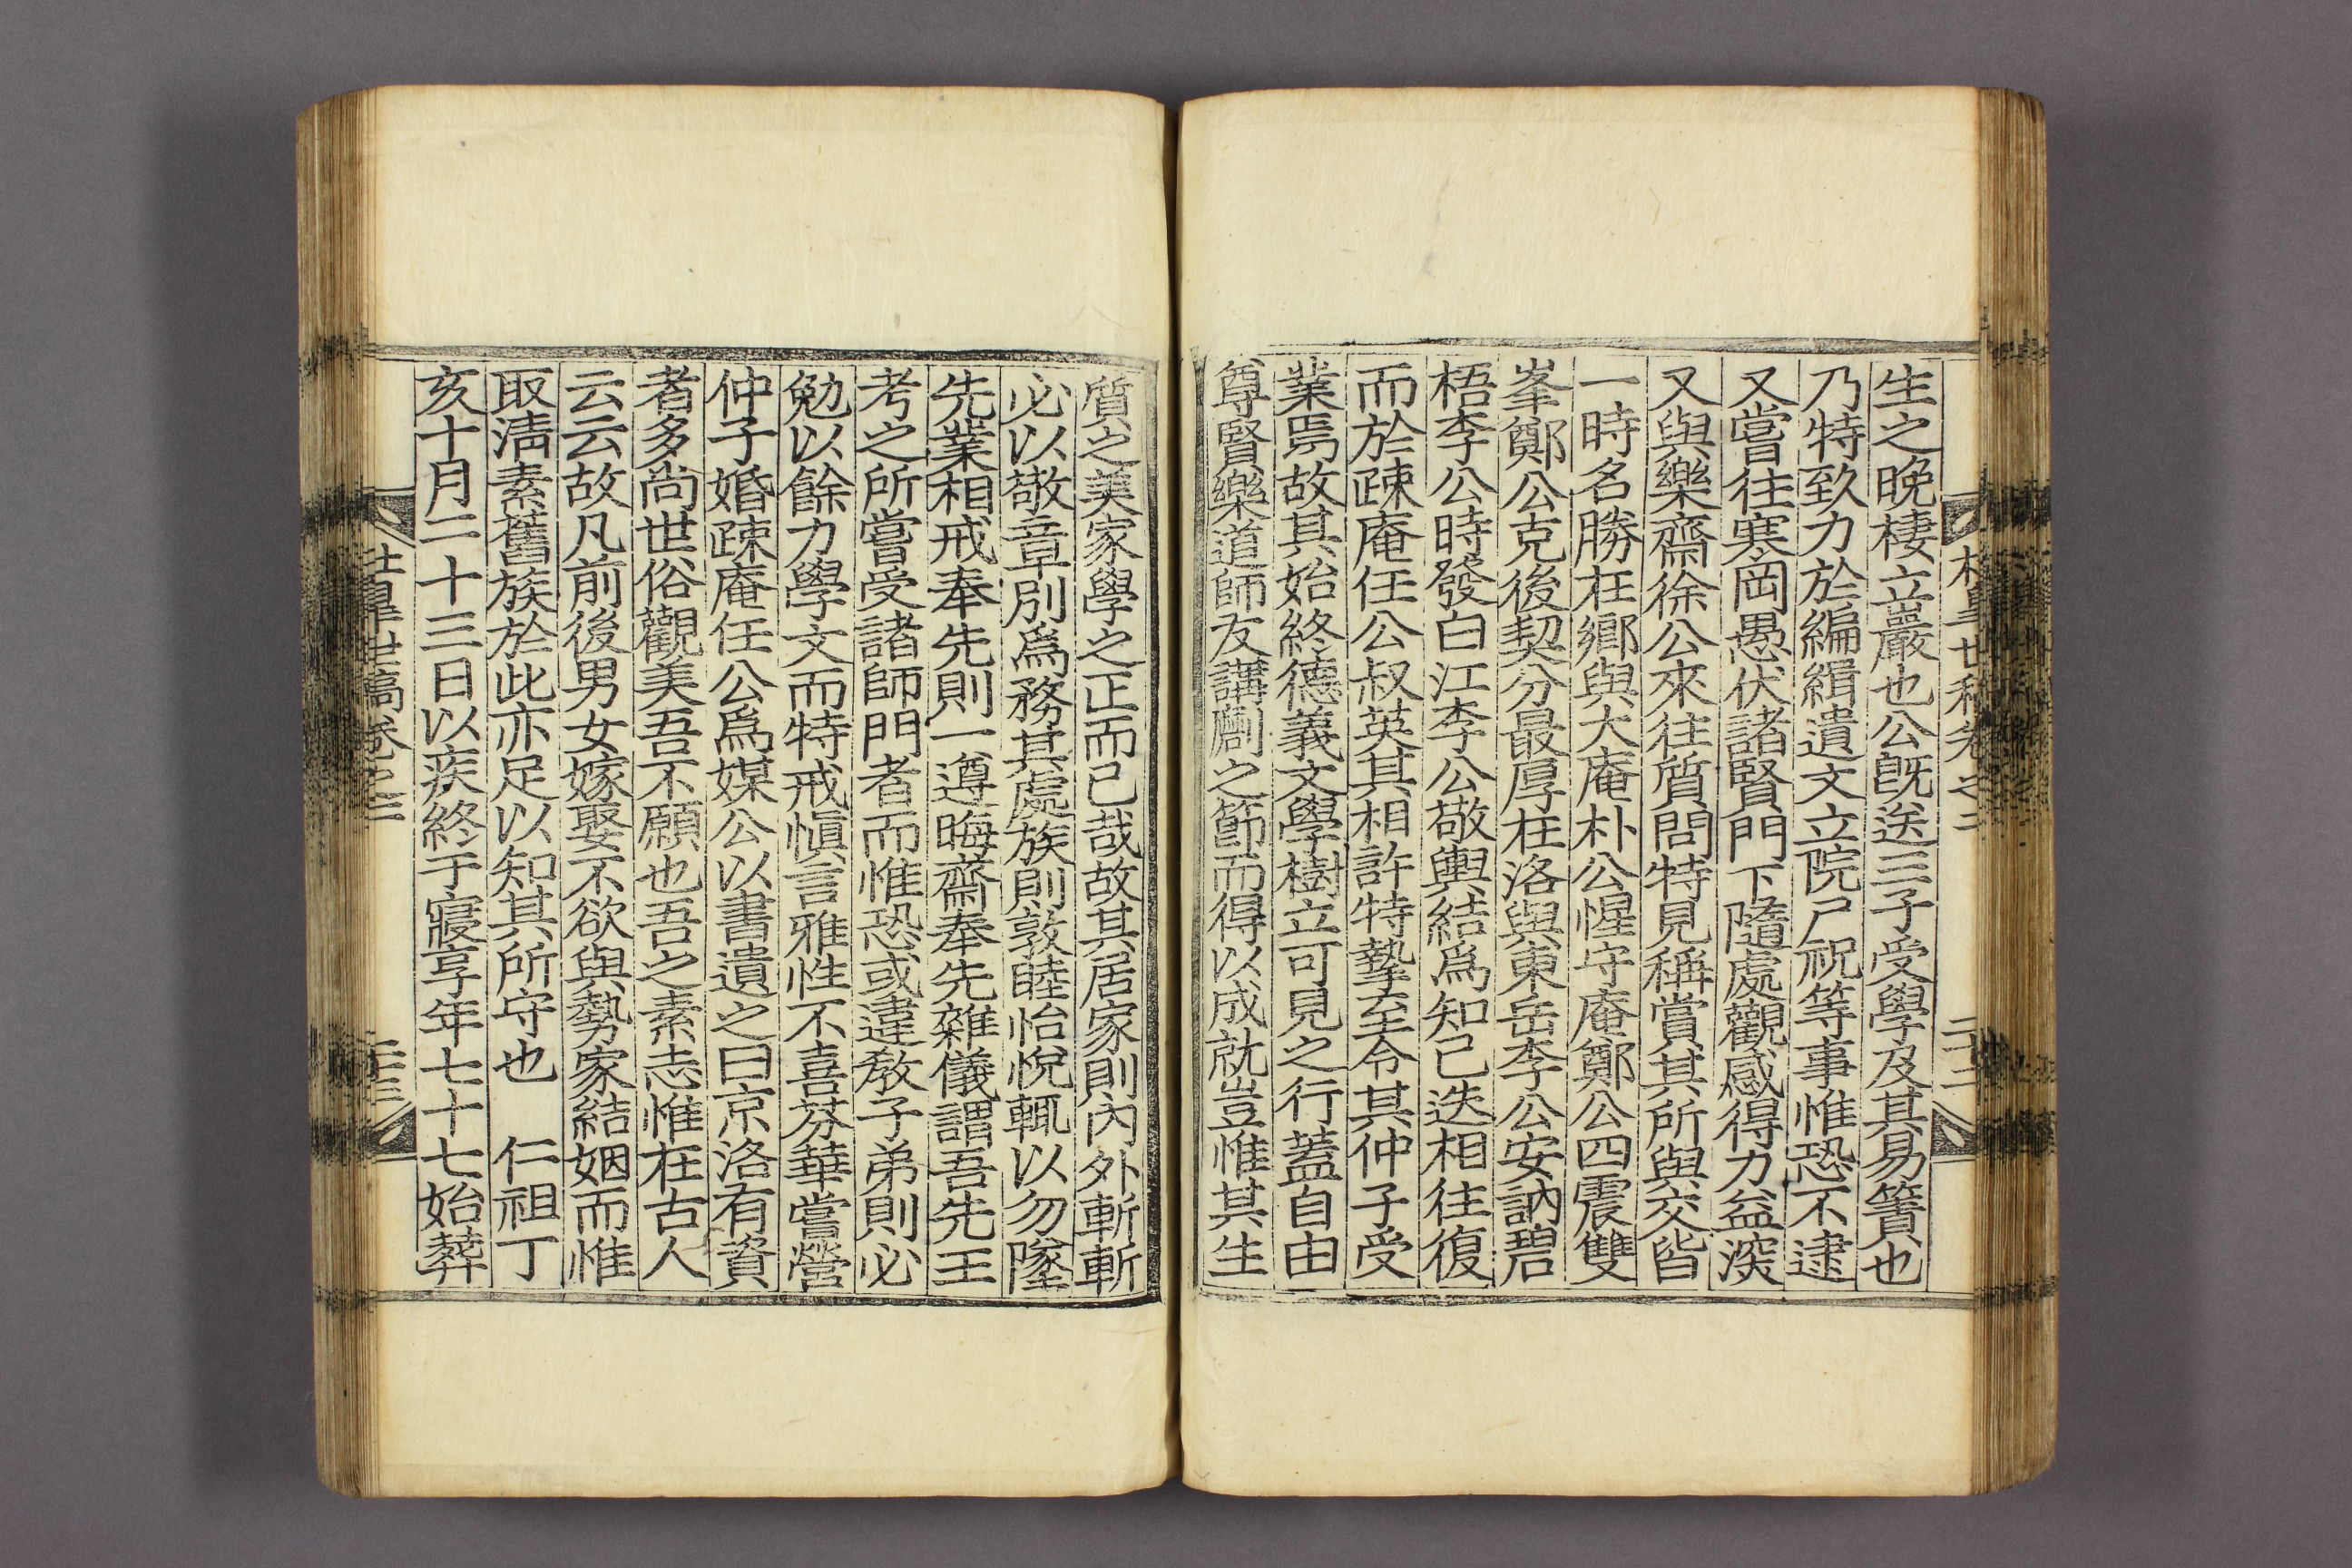 生之晩棲立巖也公旣送三子受學及其易簀也
乃特致力於編緝遺文立院尸祝等事惟恐不逮
又嘗往寒岡愚伏諸賢門下隨處觀感得力益深
又與樂齋徐公來往質問特見稱賞其所與交皆
一時名勝在鄕與大庵朴公惺守庵鄭公四震雙
峯鄭公克後契分最厚在洛與東岳李公安訥碧
梧李公時發白江李公敬輿結爲知己迭相往復
而於疎庵任公叔英其相許特摯至令其仲子受
業焉故其始終德義文學樹立可見之行蓋自由
尊賢樂道師友講劘之節而得以成就豈惟其生
質之美家學之正而已哉故其居家則內外斬斬
必以敬章別爲務其處族則敦睦怡悅輒以勿墜
先業相戒奉先則一遵晦齋奉先雜儀謂吾先王
考之所嘗受諸師門者而惟恐或違敎子弟則必
勉以餘力學文而特戒愼言雅性不喜芬華嘗營
仲子婚疎庵任公爲媒公以書遺之曰京洛有資
者多尙世俗觀美吾不願也吾之素志惟在古人
云云故凡前後男女嫁娶不欲與勢家結姻而惟
取淸素舊族於此亦足以知其所守也 仁祖丁
亥十月二十三日以疾終于寢享年七十七始葬